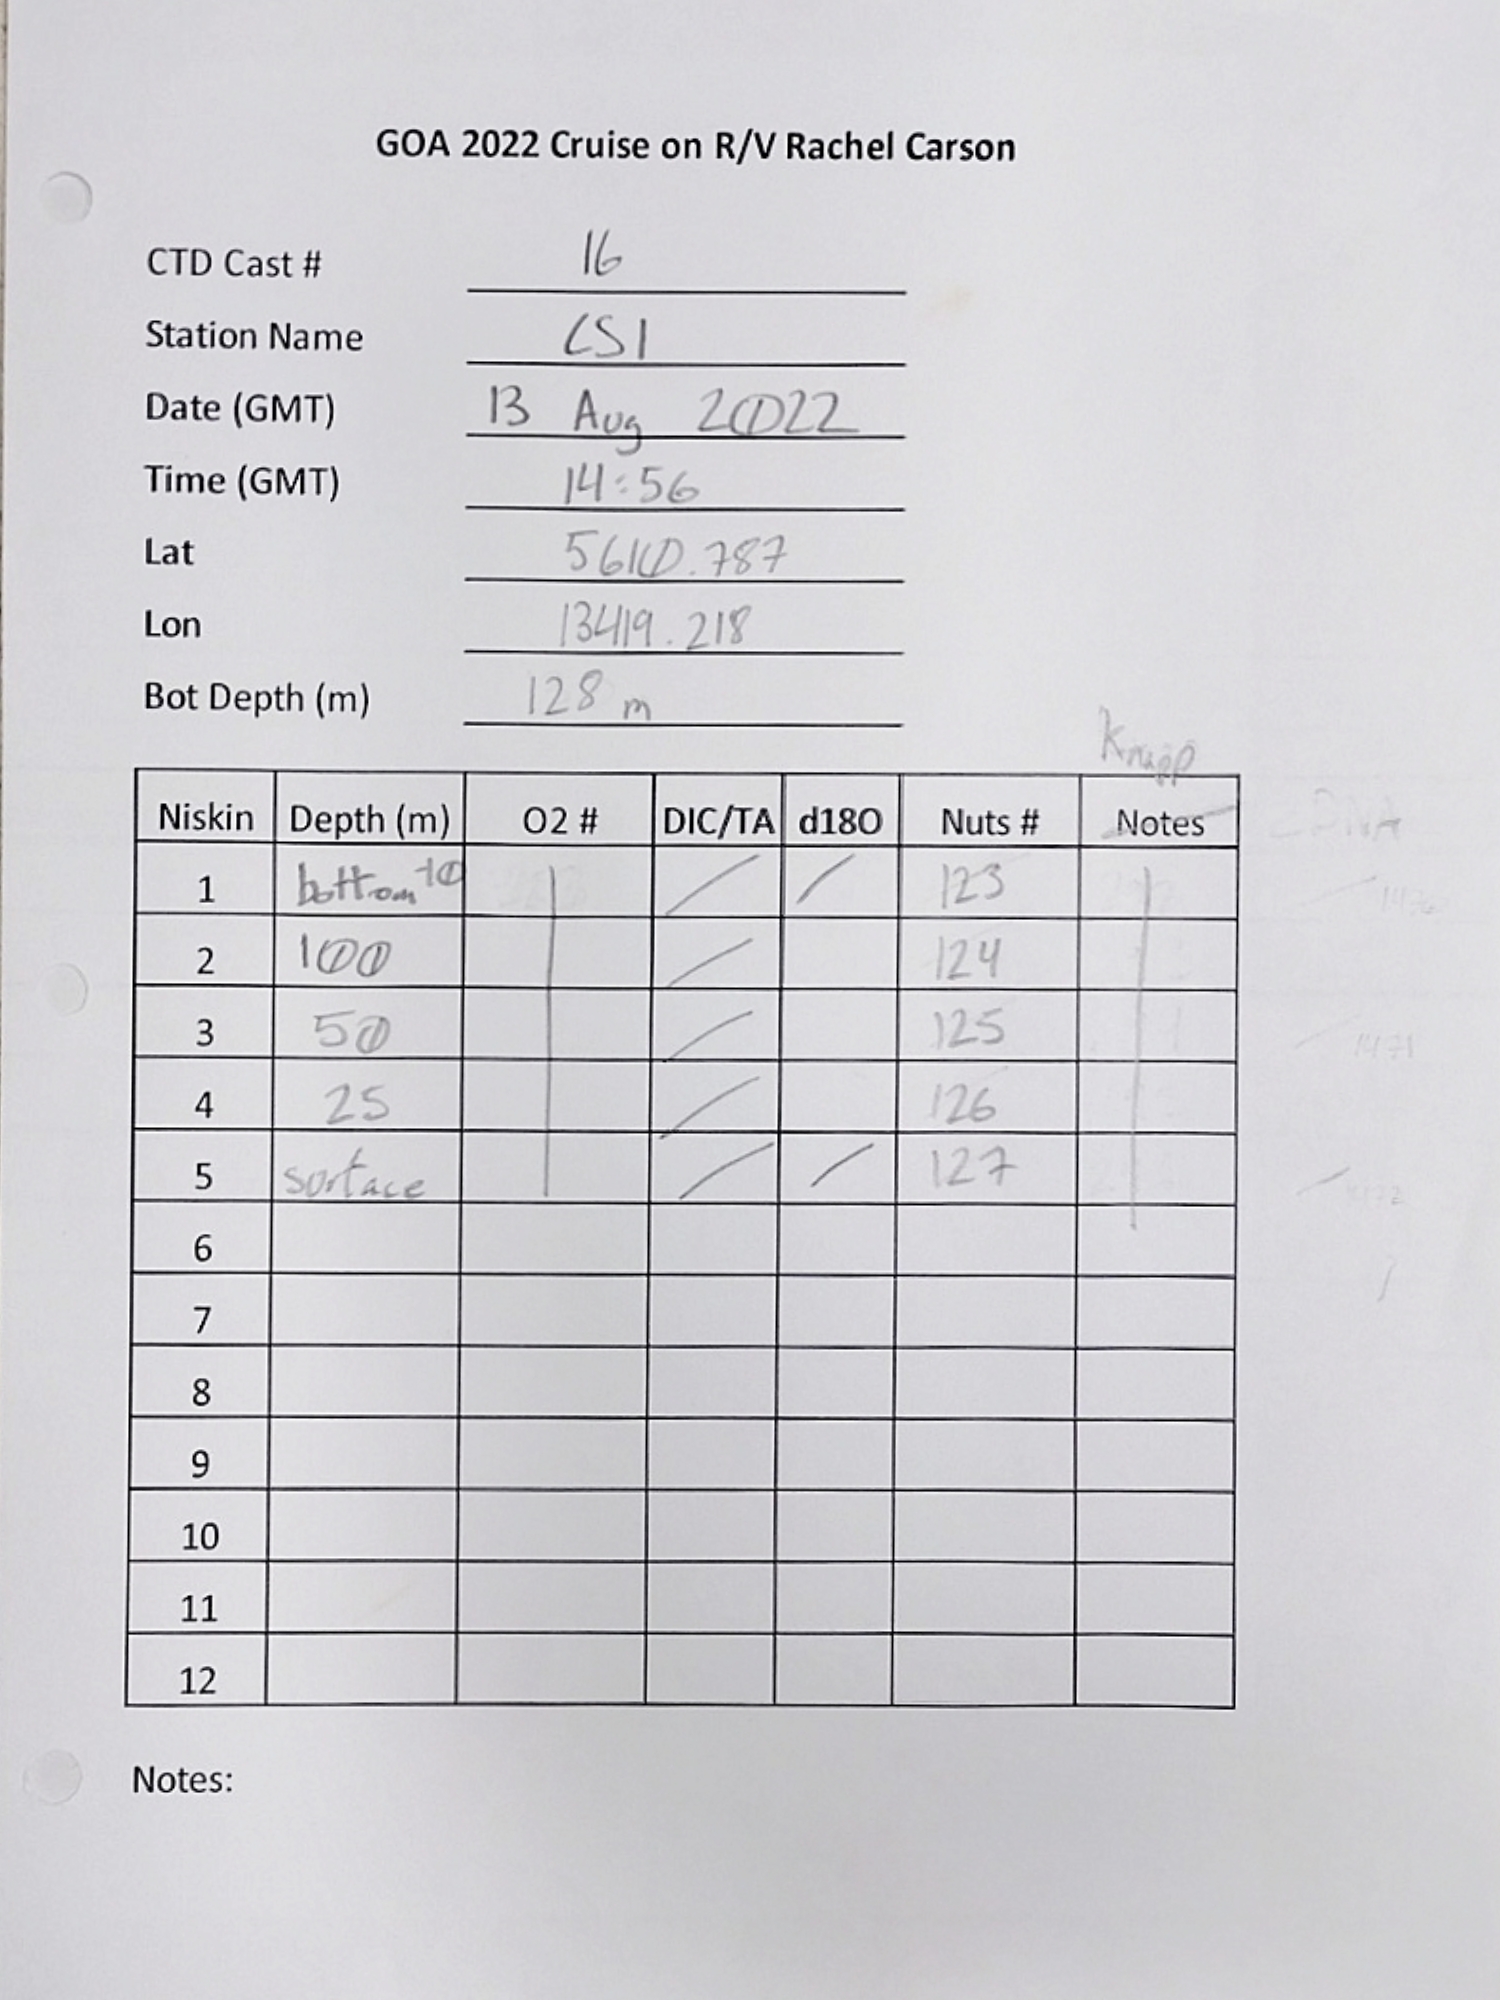 GOA 2022 Cruise on R/V Rachel Carson
CTD Cast # 16
Station Name CS1
Date (GMT) 13 Aug 2022
Time (GMT) 14:56
Lat 5610.787
Lon 13419.218
Bot Depth (m) 128 m
Knapp
Niskin Depth (m) O2 # DIC/TA d18O Nuts # Notes
1 bottom / / 123
2 100 / 124
3 50 / 125 1471
4 25 / 126
5 surface / / 127
6
7
8
9
10
11
12
Notes: